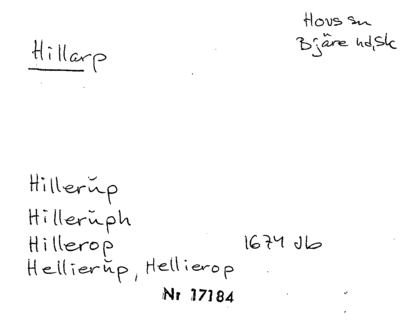 Hovs sn
Hillarp
Bjäre hd, Sk
Hillerŭp
Hillerŭph
Hillerop 1674 Jb
Hellierŭp, Hellierop
Nr 17184